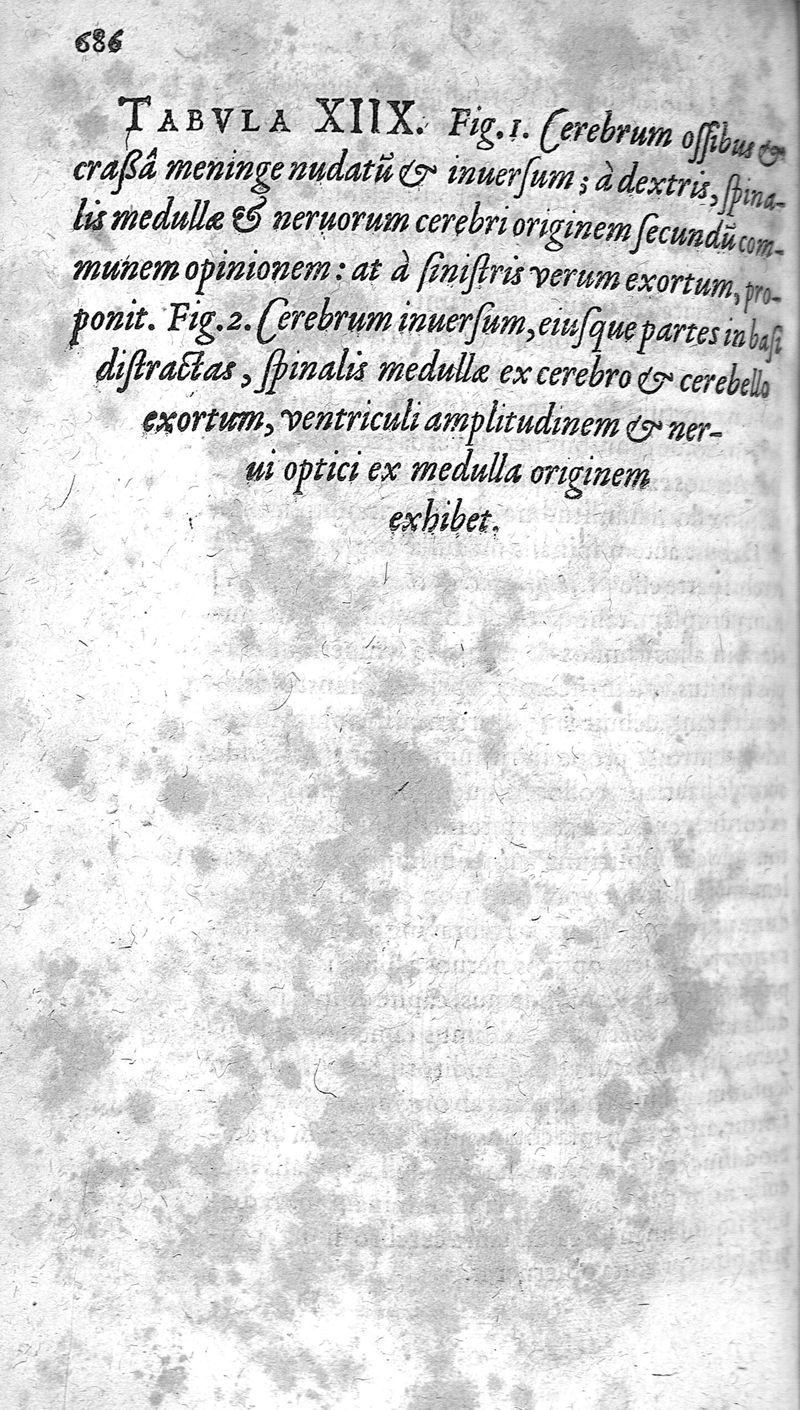 686
TABVLA XIIX. Fig. 1. Cerebrum oſſibus &
craßâ meninge nudatū & inuerſum; à dextris, ſpina-
lis medullæ & neruorum cerebri originem ſecundū com-
munem opinionem: at à ſiniſtris verum exortum, pro-
ponit. Fig. 2. Cerebrum inuerſum, eiuſque partes in baſi
diſtractas, ſpinalis medullæ ex cerebro & cerebello
exortum, ventriculi amplitudinem & ner-
ui optici ex medulla originem
exhibet.